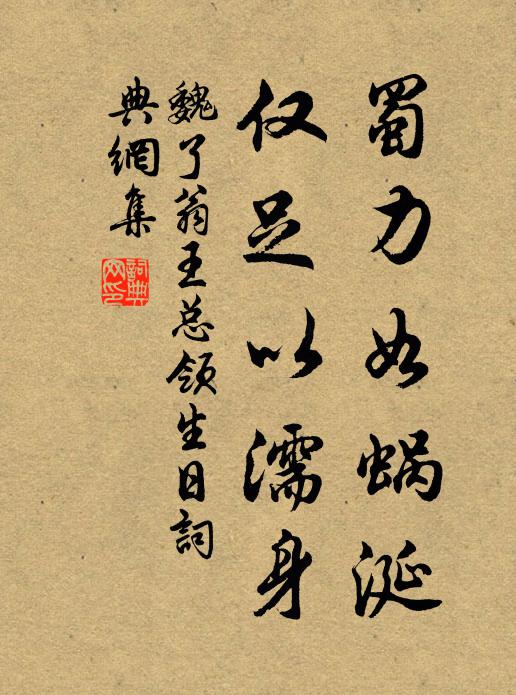 蜀力如蜗涎
仅足以濡身
魏了翁王总领生日詞
典網集
詞典
网印